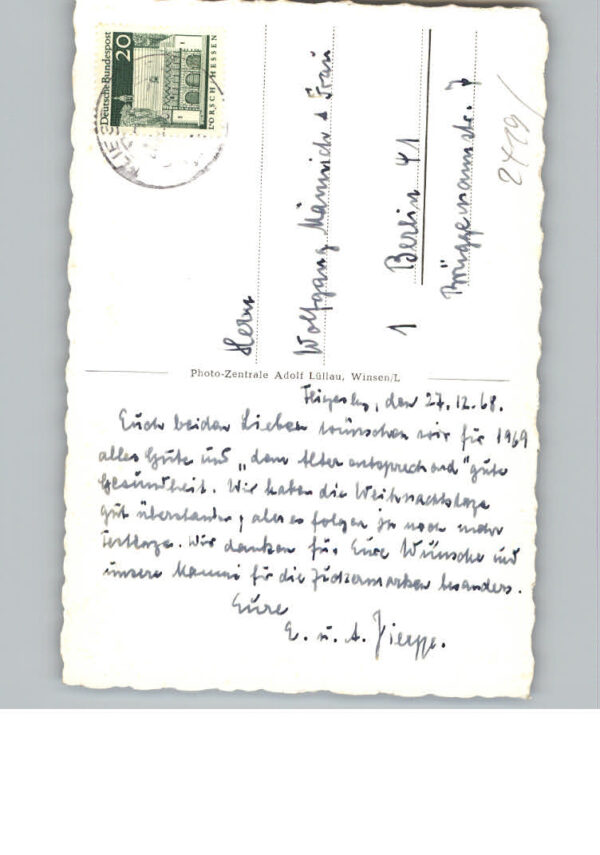 Deutsche Bundespost
20
LORSCH/HESSEN
FLIES
Herrn
Wolfgang Männich & Frau
1 Berlin 41
Brüggemannstr. 7
2419/
Photo-Zentrale Adolf Lüllau, Winsen/L
den 27.12.68.
Euch beiden Lieben wünschen wir für 1969
alles Gute und „dem Alter entsprechend" gute
Gesundheit. Wir haben die Weihnachtstage
gut überstanden, aber es folgen ja noch mehr
Festtage. Wir danken für Eure Wünsche und
unsere Mammi für die besonders.
Eure
E. u. A.